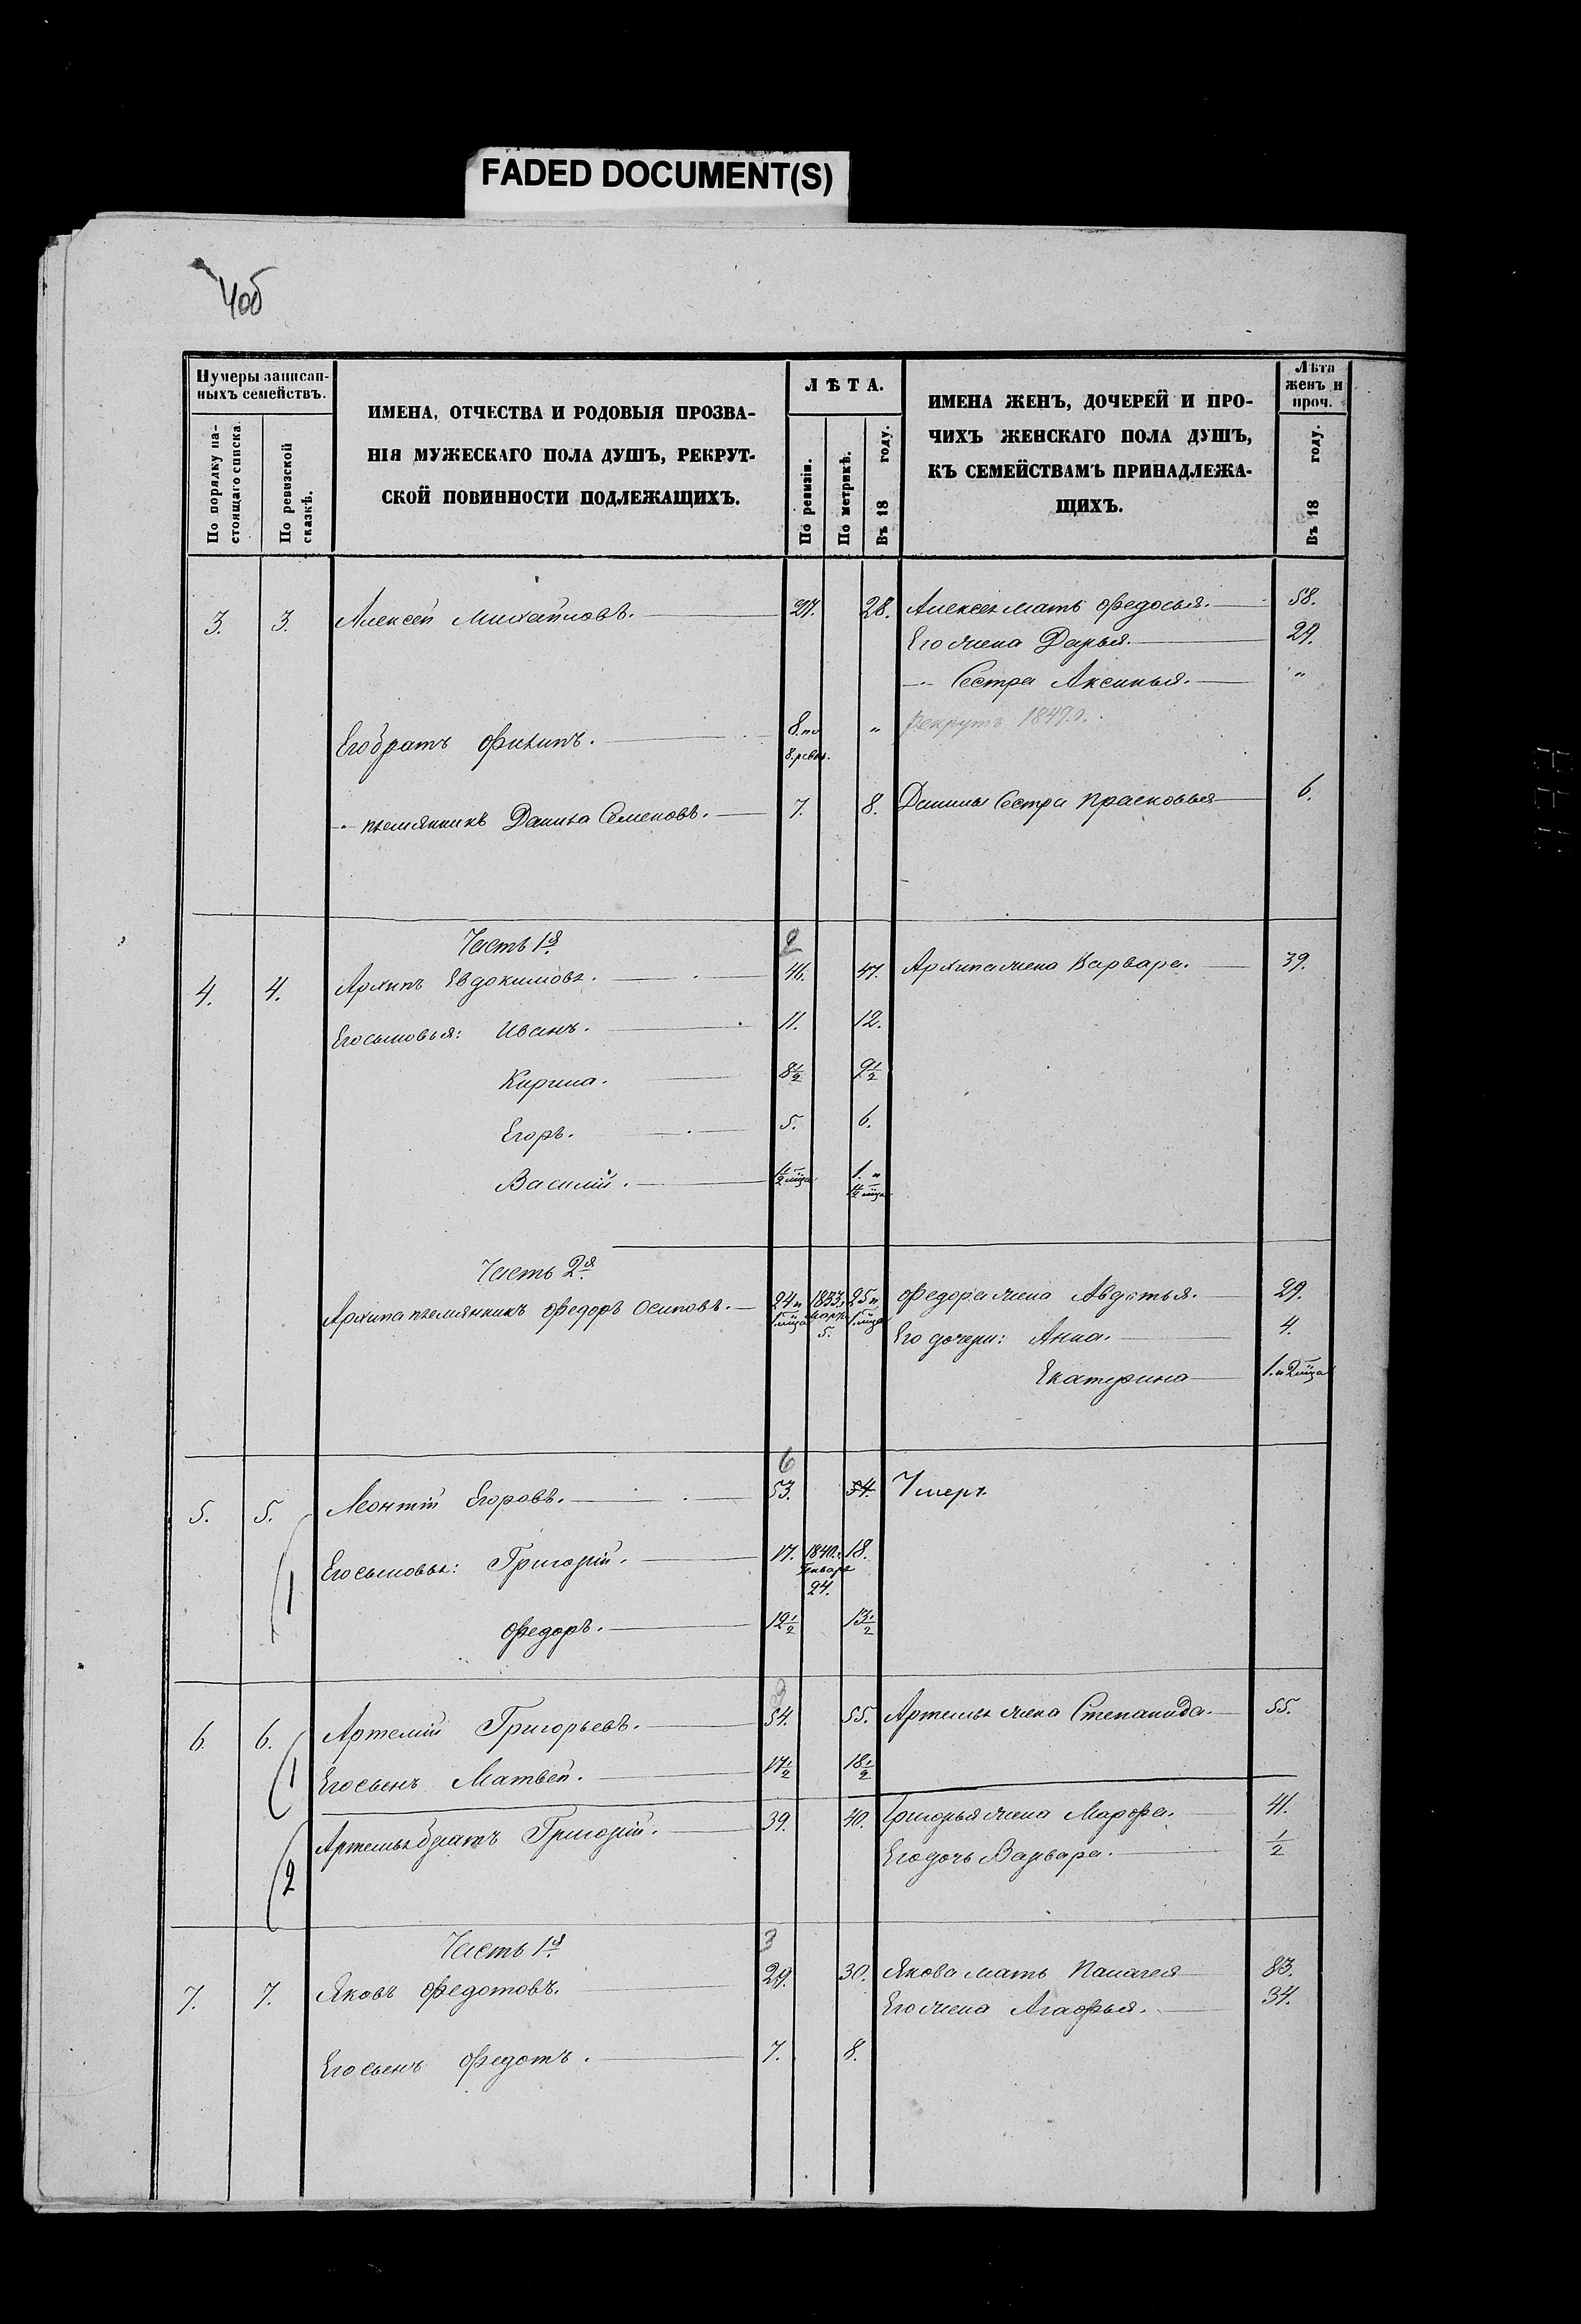 FADED DOCUMENT(S)
4об
Нумеры записан-
ныхъ семействъ.
По порядку на-
стоящаго списка.
По ревизской
сказкѣ.
ИМЕНА, ОТЧЕСТВА И РОДОВЫЯ ПРОЗВА-
НІЯ МУЖЕСКАГО ПОЛА ДУШЪ, РЕКРУТ-
СКОЙ ПОВИННОСТИ ПОДЛЕЖАЩИХЪ.
ЛѢТА.
По ревизіи.
По метрикѣ.
Въ 18 году.
ИМЕНА ЖЕНЪ, ДОЧЕРЕЙ И ПРО-
ЧИХЪ ЖЕНСКАГО ПОЛА ДУШЪ,
КЪ СЕМЕЙСТВАМЪ ПРИНАДЛЕЖА-
ЩИХЪ.
Лѣта
женъ и
проч.
Въ 18 году.
3. 3. Алексей Михайловъ. 27. 28. Алексея мать Федосья. 58.
Его жена Дарья. 29.
-"- Сестра Аксинья. "
Его братъ Филипъ. 8. по "  Рекрутъ 1849.г.
8. ревиз.
-"- племянникъ Данила Семеновъ. 7. 8. Данилы Сестра Прасковья 6.
Часть 1я 2
4. 4. Архипъ Евдокимовъ. 46. 47. Архипа жена Варвара. 39.
Его сыновья: Иванъ. 11. 12.
Кирила. 8 1/2 9 1/2
Егоръ. 5. 6.
Василій. 1/2 мца 1. и
1/2 мца
Часть 2я
Архипа племянникъ Федоръ Осиповъ. 24 и 1833. 25 и Федора жена Авдотья. 29.
1. мца Март. 1. мца
5.
Его дочери: Анна. 4.
Екатерина 1. и 2 мца
6
5. 5. Леонтій Егоровъ. 53. 54. Умеръ.
1 Его сыновья: Григорій. 17. 1840. г. 18.
Генваря
24.
Федоръ. 12 1/2 13 1/2
3
6. 6. Артемій Григорьевъ. 54. 55. Артемья жена Степанида. 55.
1 Его сынъ Матвей. 17 1/2 18 1/2
2 Артемья братъ Григорій. 39. 40. Григорья жена Марфа. 41.
Его дочь Варвара. 1/2
Часть 1я 3
7. 7. Яковъ Федотовъ. 29. 30. Якова мать Палагея 83.
Его жена Агафья. 34.
Его сынъ Федотъ. 7. 8.